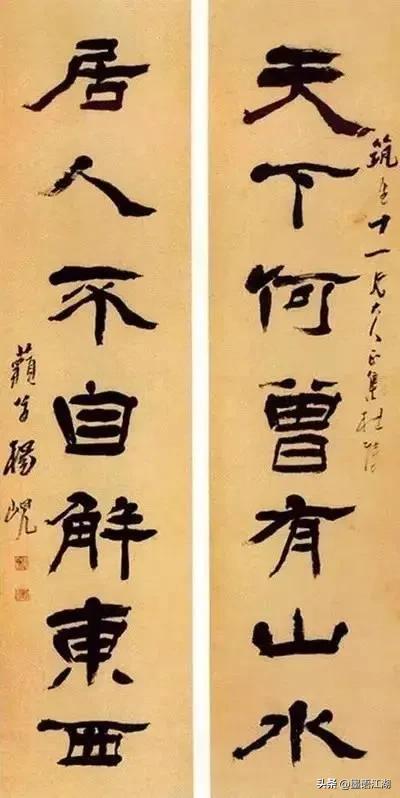 天下何曾有山水
十一兄大人正集杜陵
居人不自解東西
楊峴
头条 @墨语江湖